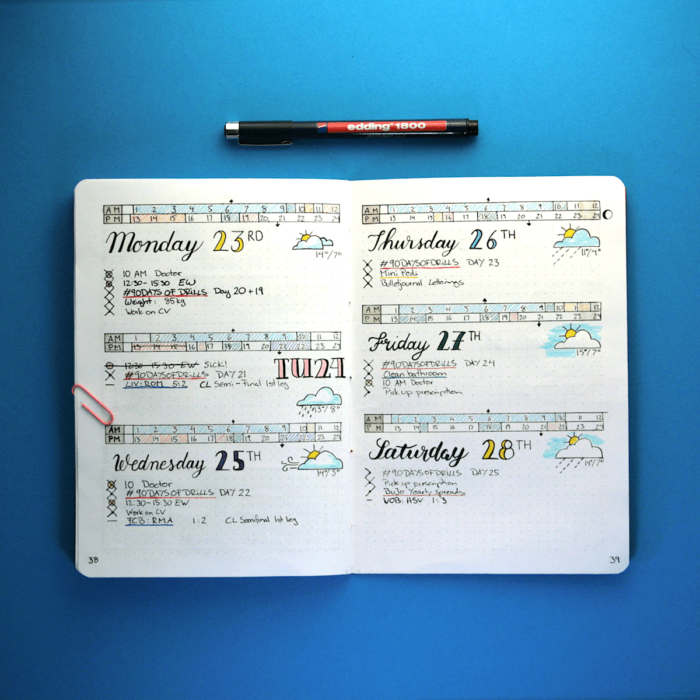 edding 1800
AM 1 2 3 4 5 6 7 8 9 10 11 12
PM 13 14 15 16 17 18 19 20 21 22 23 24
Monday 23RD
14°/7°
10 AM Doctor
12:30-15:30 EW
#90DAYSOFDRILLS Day 20+19
Weight: 85kg
Work on CV
1 2 3 4 5 6 7 8 9 10 11 12
13 14 15 16 17 18 19 20 21 22 23 24
TU24
12:30-15:30 EW SICK!
#90DAYSOFDRILLS DAY 21
LIV:ROM 5:2 CL Semi-Final 1st leg
13°/8°
AM 1 2 3 4 5 6 7 8 9 10 11 12
PM 13 14 15 16 17 18 19 20 21 22 23 24
Wednesday 25TH
14°/5°
10 Doctor
#90DAYSOFDRILLS DAY 22
12:30-15:30 EW
Work on CV
FCB:RMA 1:2 CL Semifinal 1st leg
38
AM 1 2 3 4 5 6 7 8 9 10 11 12
PM 13 14 15 16 17 18 19 20 21 22 23 24
Thursday 26TH
11°/4°
#90DAYSOFDRILLS DAY 23
Mini Pedi
Bulletjournal Letterings
AM 1 2 3 4 5 6 7 8 9 10 11 12
PM 13 14 15 16 17 18 19 20 21 22 23 24
Friday 27TH
15°/7°
#90DAYSOFDRILLS DAY 24
Clean bathroom
10 AM Doctor
Pick up prescription
AM 1 2 3 4 5 6 7 8 9 10 11 12
PM 13 14 15 16 17 18 19 20 21 22 23 24
Saturday 28TH
/7°
#90DAYSOFDRILLS DAY 25
Pick up prescription
BuJo Yearly spreads
WOB:HSV 1:3
39